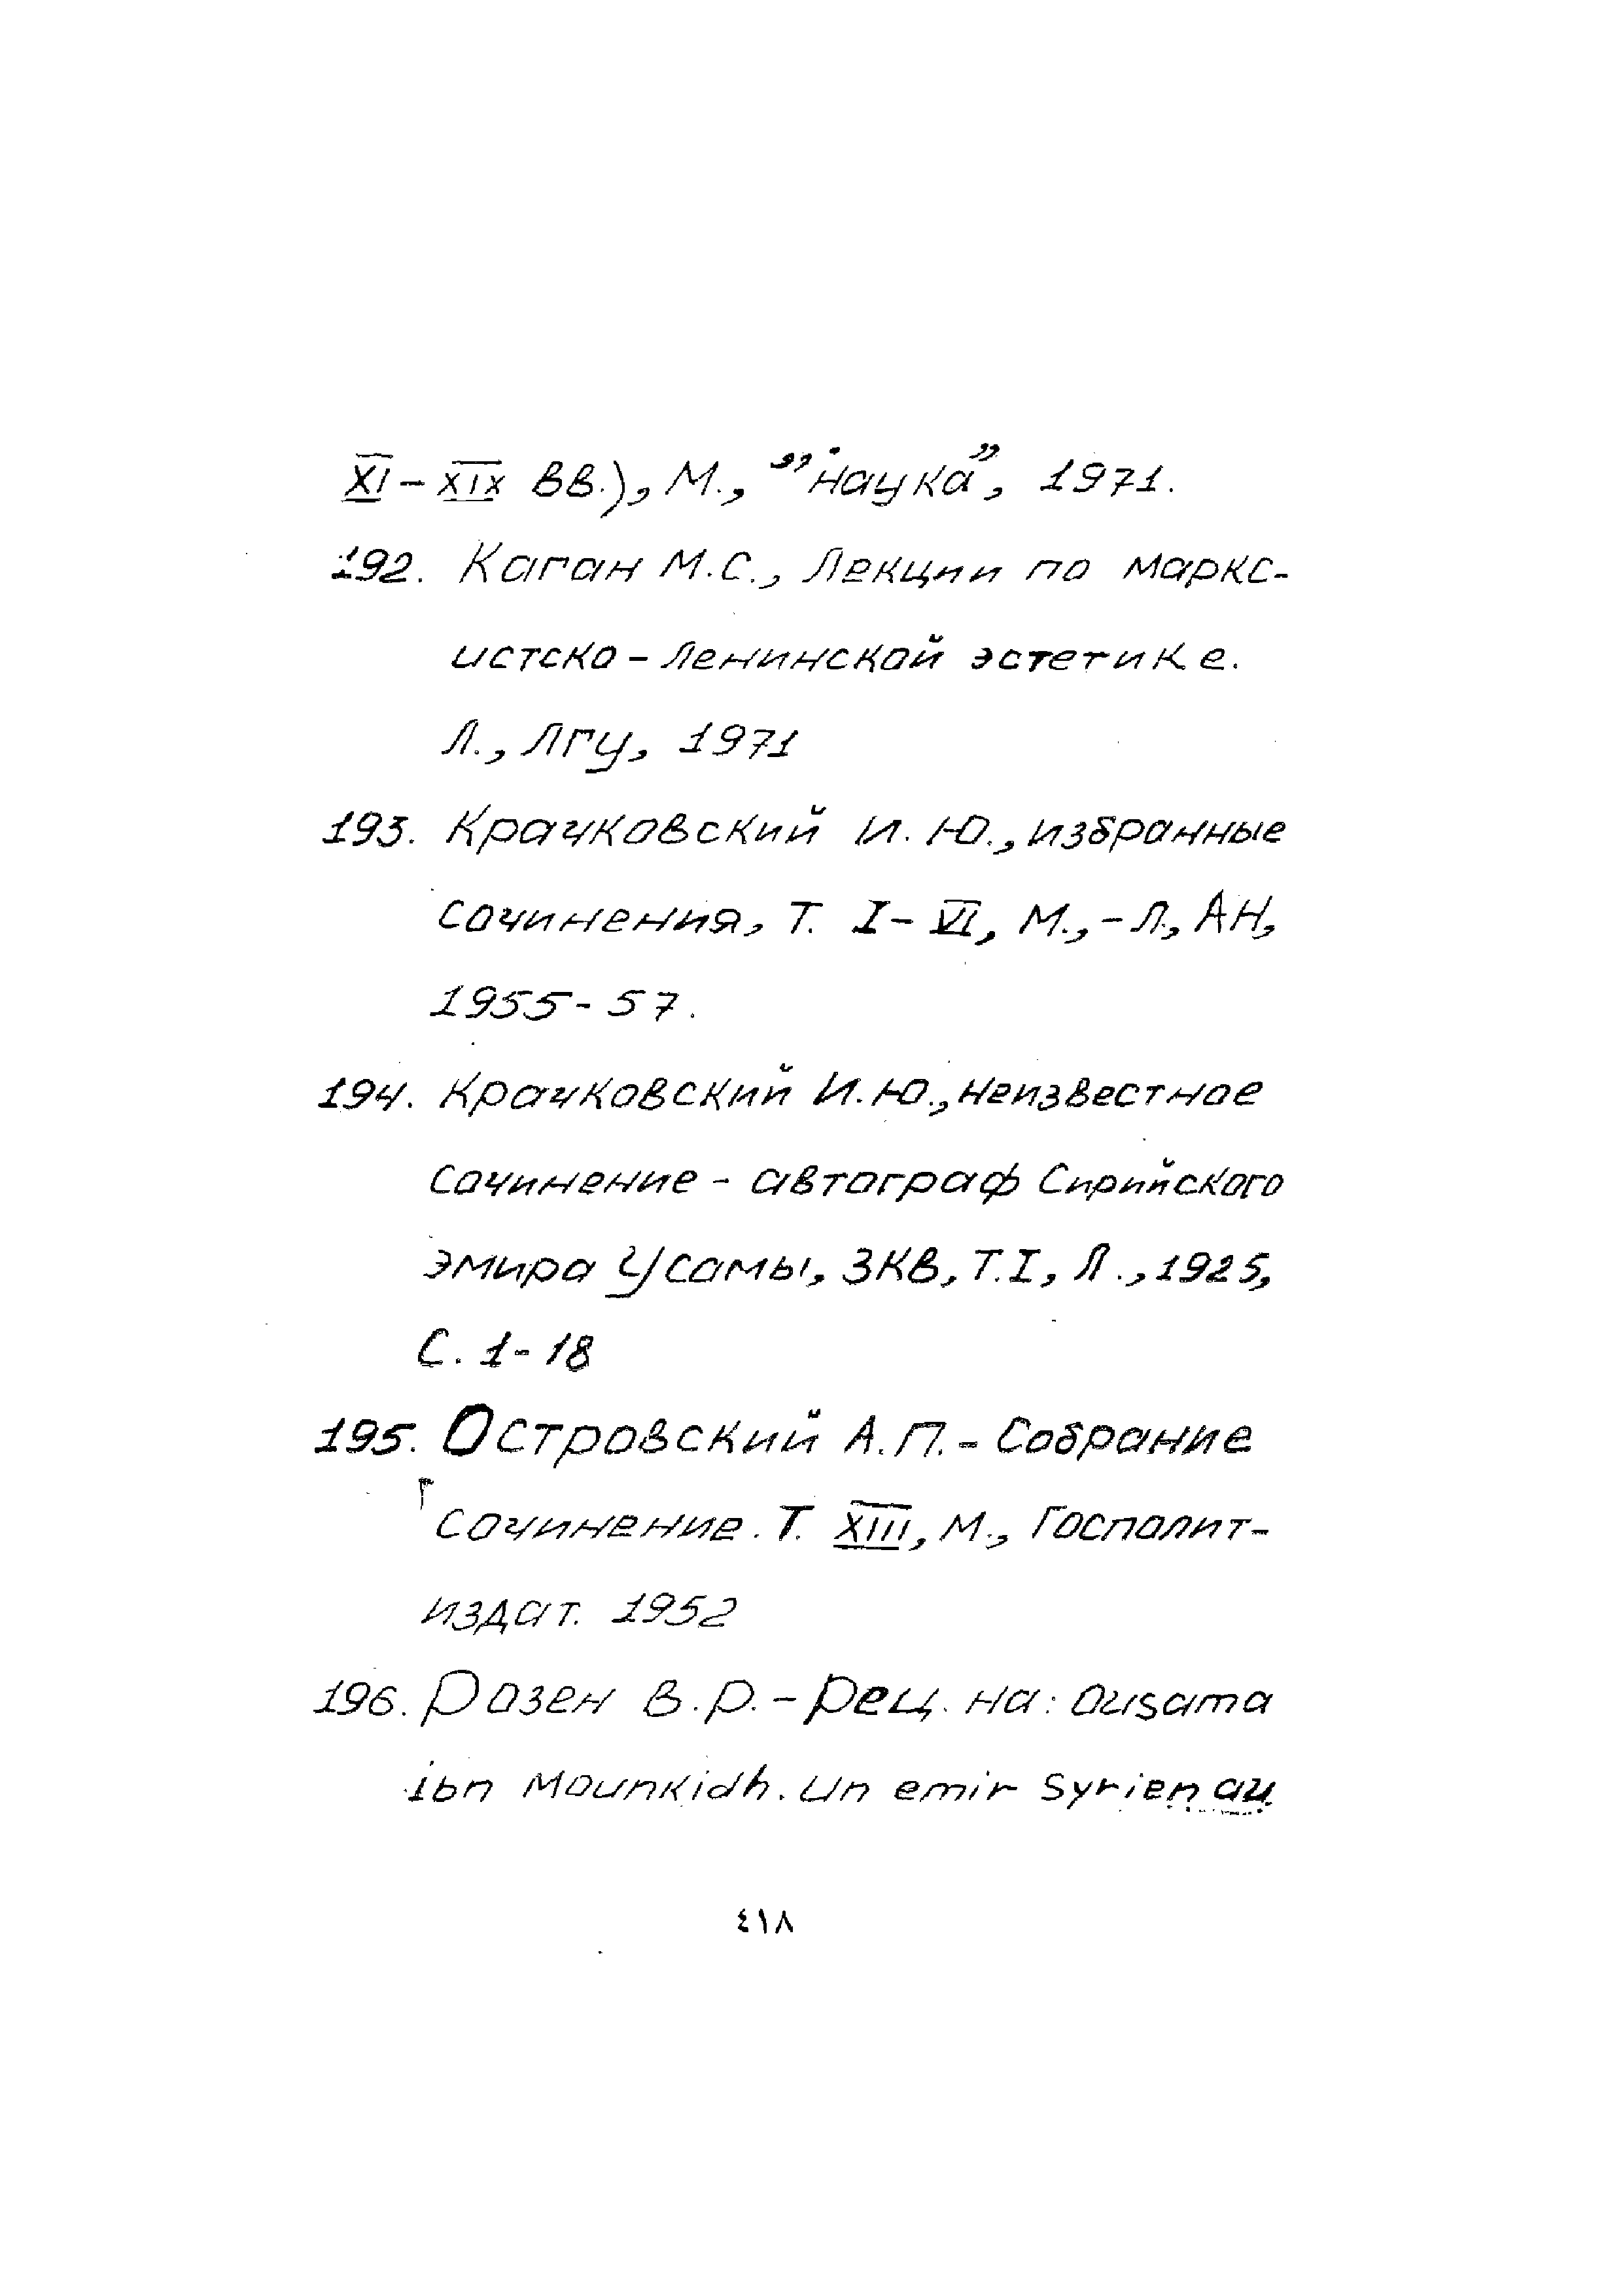 XI-XIX вв.), М., "наука", 1971.
192. Каган М.С., Лекции по маркс-
истско-ленинской эстетике.
Л., Лгу, 1971
193. Крачковский И. Ю., избранные
сочинения, Т. I-VI, М.,-Л., АН,
1955-57.
194. Крачковский И.Ю., Неизвестное
сочинение - автограф Сирийского
эмира Усамы, ЗКВ, Т.I, Л., 1925,
С. 1-18
195. Островский А.П. - Собрание
сочинение. Т. XIII, М., Госполит-
издат. 1952
196. Розен В.Р. - Рец. на: Ousama
ibn Mounkidh. Un emir Syrien au
٤١٨